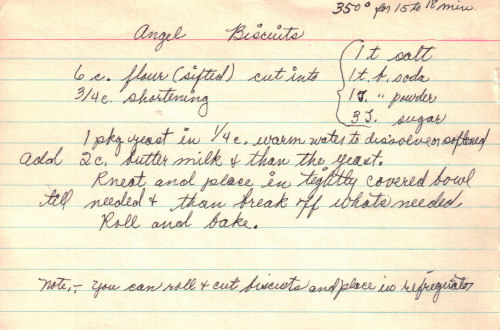 350° for 15 to 18 min.
Angel Biscuits
6 c. flour (sifted) cut into
3/4 c. shortening
1 t salt
1 t. b. soda
1 T. " powder
3 T. sugar
1 pkg. yeast in 1/4 c. warm water to dissolve or softened
add 2 c. butter milk & than the yeast.
Kneat and place in tightly covered bowl
tell needed & than break off whats needed
Roll and bake.
Note,- You can roll & cut biscuits and place in refreguator